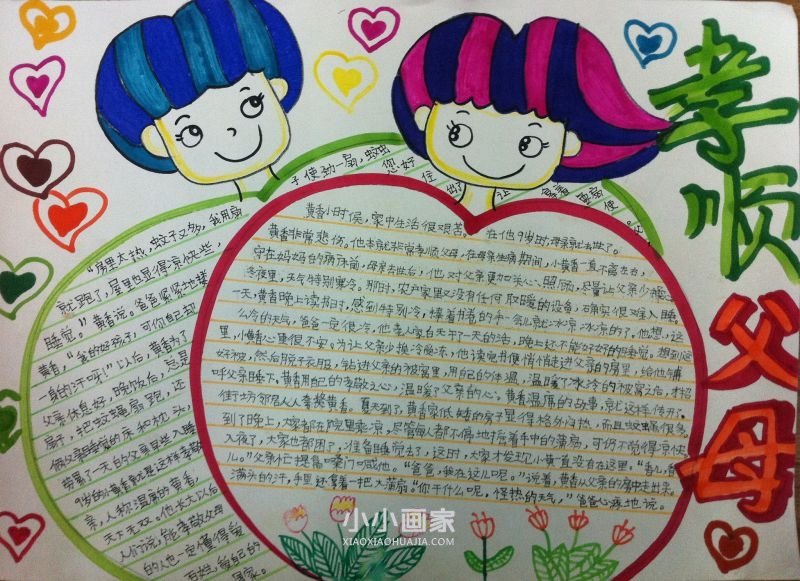 孝顺
父母
黄香小时候，家中生活很艰苦。在他9岁时，母亲就去世了。
黄香非常悲伤。他本就非常孝顺父母，在母亲生病期间，小黄香一直不离左右，
守在妈妈的病床前，母亲去世后，他对父亲更加关心、照顾，尽量让父亲少操心。
冬夜里，天气特别寒冷。那时，农户家里又没有任何取暖的设备，确实很难入睡。
一天，黄香晚上读书时，感到特别冷，捧着书卷的手一会儿就冰凉冰凉的了。他想，这
么冷的天气，爸爸一定很冷，他老人家白天干了一天的活，晚上还不能好好的睡觉。想到这
里，小黄香心里很不安。为让父亲少挨冷受冻，他读完书便悄悄走进父亲的房里，给他铺
好被，然后脱了衣服，钻进父亲的被窝里，用自己的体温，温暖了冰冷的被窝之后，才招
呼父亲睡下。黄香用自己的孝敬之心，温暖了父亲的心。黄香温席的故事，就这样传开了，
街坊邻居人人夸奖黄香。夏天到了，黄香家低矮的房子显得格外闷热，而且蚊蝇很多。
到了晚上，大家都在院里乘凉，尽管每人都不停地摇着手中的蒲扇，可仍不觉得凉快。
入夜了，大家也都困了，准备睡觉去了，这时，大家才发现小黄香没有在这里。“香儿，香
儿。”父亲忙提高嗓门喊他。“爸爸，我在这儿呢。”说着，黄香从父亲的房中走出来。
满头的汗，手里还拿着一把大蒲扇。“你干什么呢，怪热的天气，”爸爸心疼地说。
“房里太热，蚊子又多，我用扇
子使劲一扇，蚊虫
就跑了，屋里也显得凉快些，
您好
睡觉。”黄香说。爸爸紧紧地搂
住
黄香，“我的好孩子，可你自己却
出了
一身的汗呀！”以后，黄香为了
让
父亲休息好，晚饭后，总是
扇子，把蚊蝇扇跑，还
要扇
的床和枕头，
使
劳累了一天的父亲早些入睡。
9岁的小黄香就是这样孝敬父
亲，人称温席的黄香，
天下无双。他长大以后
人们说，能孝敬父母
的人也一定懂得爱
百姓，爱自己的
国家。
小小画家
XIAOXIAOHUAJIA.COM